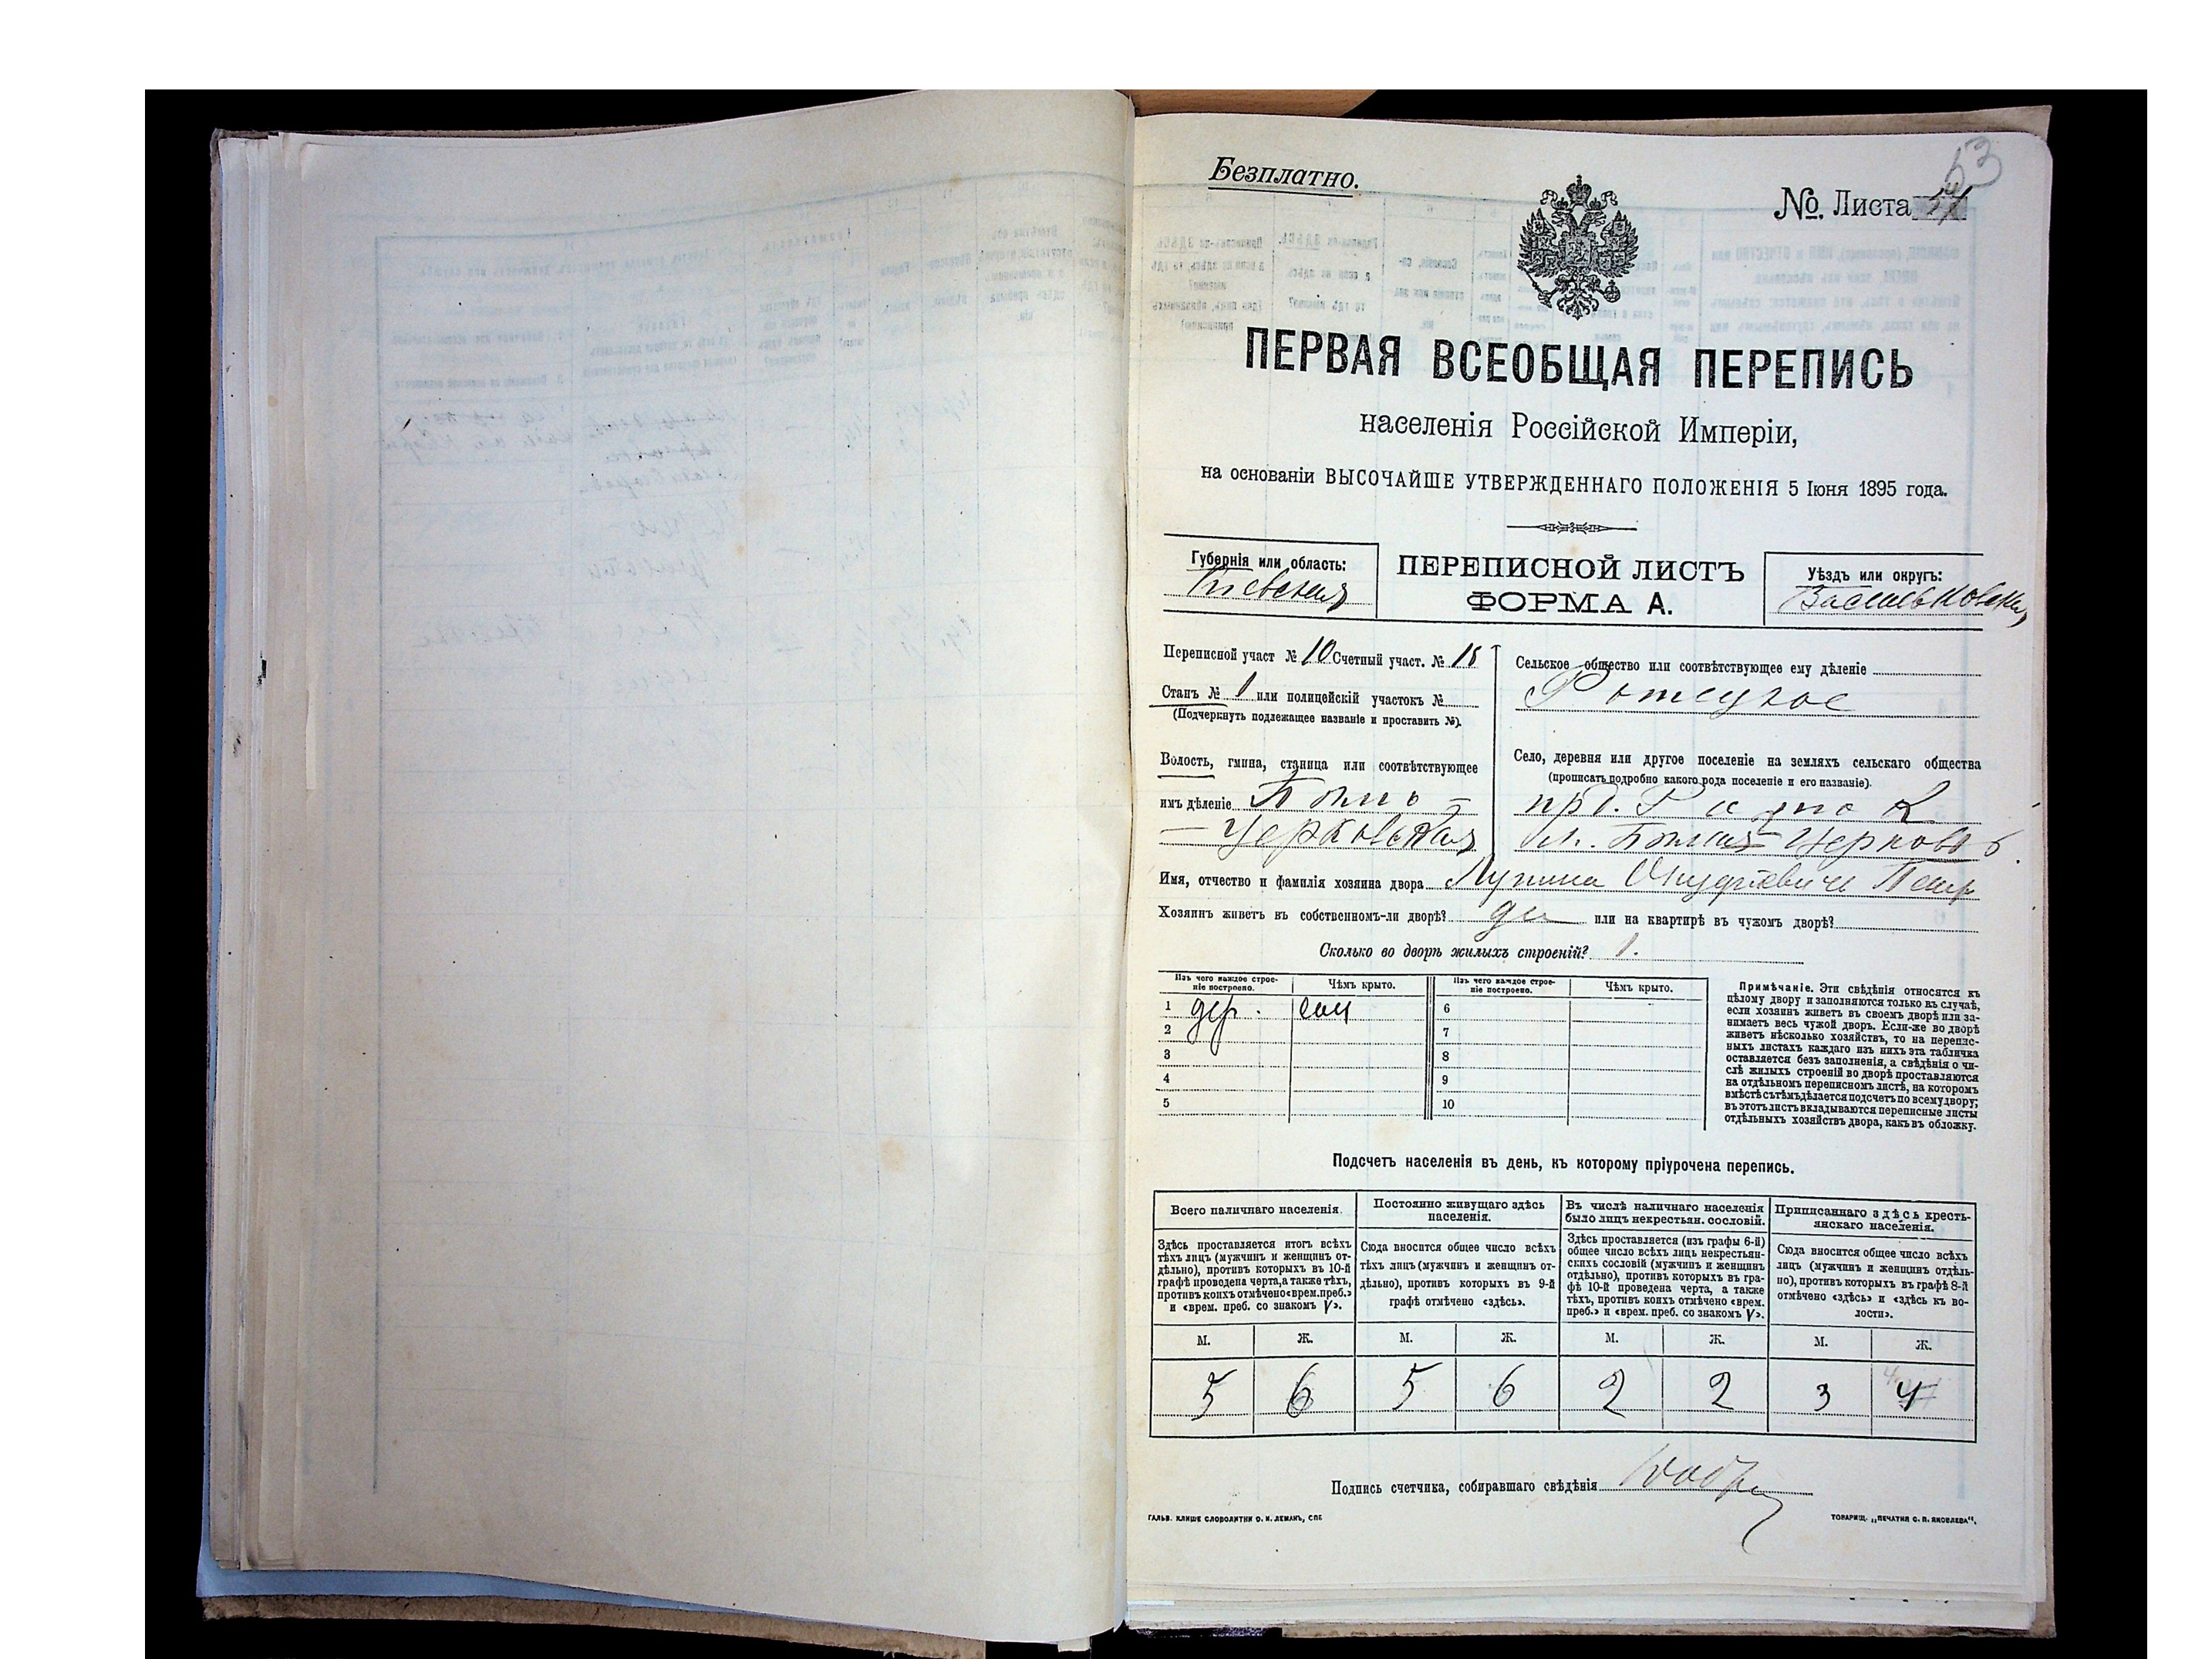 53
Безплатно.
№. Листа
ПЕРВАЯ ВСЕОБЩАЯ ПЕРЕПИСЬ
населенія Россійской Имперіи,
на основаніи ВЫСОЧАЙШЕ УТВЕРЖДЕННАГО ПОЛОЖЕНІЯ 5 Іюня 1895 года.
Губернія или область:
Кіевская
ПЕРЕПИСНОЙ ЛИСТЪ
ФОРМА А.
Уѣздъ или округъ:
Васильковскій
Переписной участ № 10 Счетный участ. № 18
Станъ № 1 или полицейскій участокъ №
(Подчеркнуть подлежащее названіе и проставить №).
Волость, гмина, станица или соотвѣтствующее
имъ дѣленіе Бѣло-
-Церковская
Сельское общество или соотвѣтствующее ему дѣленіе
Село, деревня или другое поселеніе на земляхъ сельскаго общества
(прописать подробно какого рода поселеніе и его названіе).
м. Бѣлая-Церковь
Имя, отчество и фамилія хозяина двора
Хозяинъ живетъ въ собственномъ-ли дворѣ? да или на квартирѣ въ чужомъ дворѣ?
Сколько во дворѣ жилыхъ строеній? 1.
Изъ чего каждое строе-
ніе построено.
Чѣмъ крыто.
Изъ чего каждое строе-
ніе построено.
Чѣмъ крыто.
1 дер. сол
2
3
4
5
6
7
8
9
10
Примѣчаніе. Эти свѣдѣнія относятся къ
цѣлому двору и заполняются только въ случаѣ,
если хозяинъ живетъ въ своемъ дворѣ или за-
нимаетъ весь чужой дворъ. Если-же во дворѣ
живетъ нѣсколько хозяйствъ, то на перепис-
ныхъ листахъ каждаго изъ нихъ эта табличка
оставляется безъ заполненія, а свѣдѣнія о чи-
слѣ жилыхъ строеній во дворѣ проставляются
на отдѣльномъ переписномъ листѣ, на которомъ
вмѣстѣ съ тѣмъ дѣлается подсчетъ по всему двору;
въ этотъ листъ вкладываются переписные листы
отдѣльныхъ хозяйствъ двора, какъ въ обложку.
Подсчетъ населенія въ день, къ которому пріурочена перепись.
Всего наличнаго населенія.
Здѣсь проставляется итогъ всѣхъ
тѣхъ лицъ (мужчинъ и женщинъ от-
дѣльно), противъ которыхъ въ 10-й
графѣ проведена черта, а также тѣхъ,
противъ коихъ отмѣчено «врем. преб.»
и «врем. преб. со знакомъ V».
Постоянно живущаго здѣсь
населенія.
Сюда вносится общее число всѣхъ
тѣхъ лицъ (мужчинъ и женщинъ от-
дѣльно), противъ которыхъ въ 9-й
графѣ отмѣчено «здѣсь».
Въ числѣ наличнаго населенія
было лицъ некрестьян. сословій.
Здѣсь проставляется (изъ графы 6-й)
общее число всѣхъ лицъ некрестьян-
скихъ сословій (мужчинъ и женщинъ
отдѣльно), противъ которыхъ въ гра-
фѣ 10-й проведена черта, а также
тѣхъ, противъ коихъ отмѣчено «врем.
преб.» и «врем. преб. со знакомъ V».
Приписаннаго здѣсь кресть-
янскаго населенія.
Сюда вносится общее число всѣхъ
лицъ (мужчинъ и женщинъ отдѣль-
но), противъ которыхъ въ графѣ 8-й
отмѣчено «здѣсь» и «здѣсь къ во-
лости».
М. Ж. М. Ж. М. Ж. М. Ж.
5 6 5 6 2 2 3 4
Подпись счетчика, собиравшаго свѣдѣнія
ГАЛЬВ. КЛИШЕ СЛОВОЛИТНИ О. И. ЛЕМАНЪ, СПБ
ТОВАРИЩ. „ПЕЧАТНЯ С. П. ЯКОВЛЕВА“.